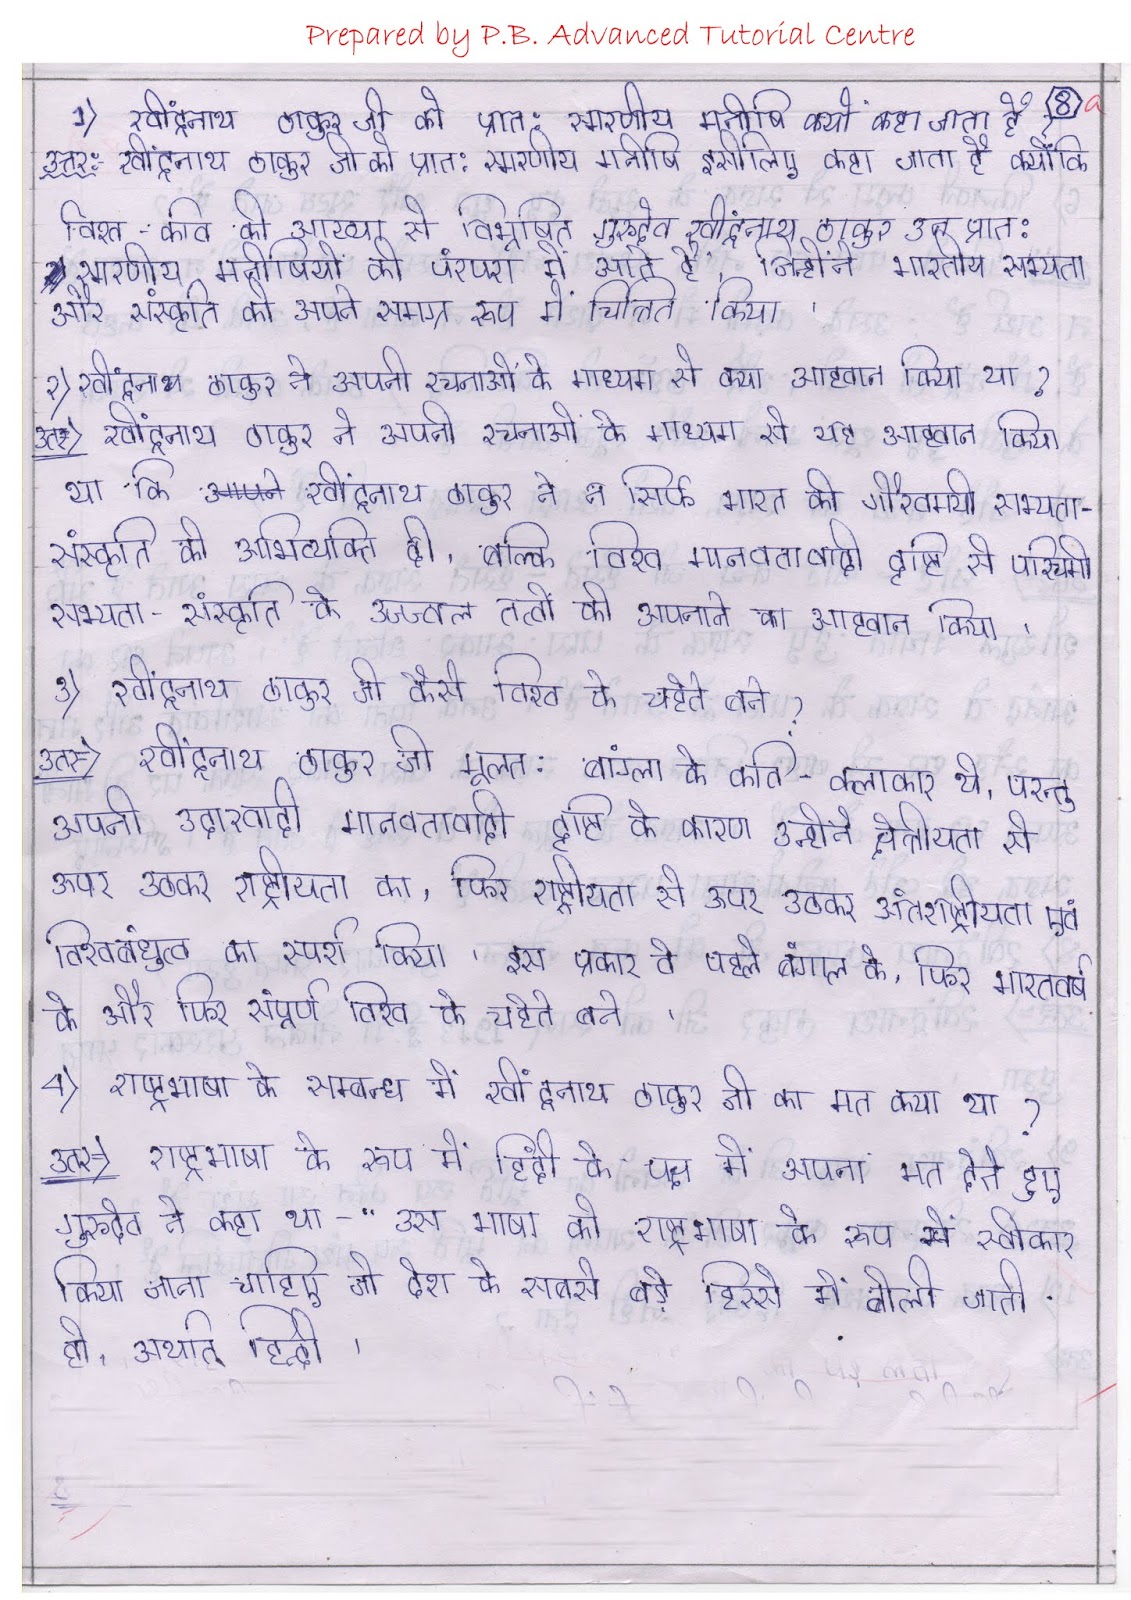 Prepared by P.B. Advanced Tutorial Centre
8 a
1) रवींद्रनाथ ठाकुर जी को प्रात: स्मरणीय मनीषि क्यों कहा जाता है ?
उत्तर:- रवींद्रनाथ ठाकुर जी को प्रात: स्मरणीय मनीषि इसीलिए कहा जाता है क्योंकि
विश्व - कवि की आख्या से विभूषित गुरुदेव रवींद्रनाथ ठाकुर उन प्रात:
स्मरणीय मनीषियों की परंपरा में आते हैं, जिन्होंने भारतीय सभ्यता
और संस्कृति को अपने समग्र रूप में चित्रित किया ।
२) रवींद्रनाथ ठाकुर ने अपनी रचनाओं के माध्यम से क्या आह्वान किया था ?
उतर→ रवींद्रनाथ ठाकुर ने अपनी रचनाओं के माध्यम से यह आह्वान किया
था कि आपने रवींद्रनाथ ठाकुर ने न सिर्फ भारत की गौरवमयी सभ्यता-
संस्कृति को अभिव्यक्ति दी, बल्कि विश्व मानवतावादी दृष्टि से पश्चिमी
सभ्यता - संस्कृति के उज्ज्वल तत्वों को अपनाने का आह्वान किया ।
3) रवींद्रनाथ ठाकुर जी कैसे विश्व के चहेते बने ?
उतर→ रवींद्रनाथ ठाकुर जी मूलत: बांग्ला के कवि - कलाकार थे, परन्तु
अपनी उदारवादी मानवतावादी दृष्टि के कारण उन्होंने क्षेत्रीयता से
ऊपर उठकर राष्ट्रीयता का, फिर राष्ट्रीयता से ऊपर उठकर अंतर्राष्ट्रीयता एवं
विश्वबंधुत्व का स्पर्श किया । इस प्रकार वे पहले बंगाल के, फिर भारतवर्ष
के और फिर संपूर्ण विश्व के चहेते बने ।
4) राष्ट्रभाषा के सम्बन्ध में रवींद्रनाथ ठाकुर जी का मत क्या था ?
उतर→ राष्ट्रभाषा के रूप में हिंदी के पक्ष में अपना मत देते हुए
गुरुदेव ने कहा था - " उस भाषा को राष्ट्रभाषा के रूप में स्वीकार
किया जाना चाहिए जो देश के सबसे बड़े हिस्से में बोली जाती
हो, अर्थात् हिन्दी ।